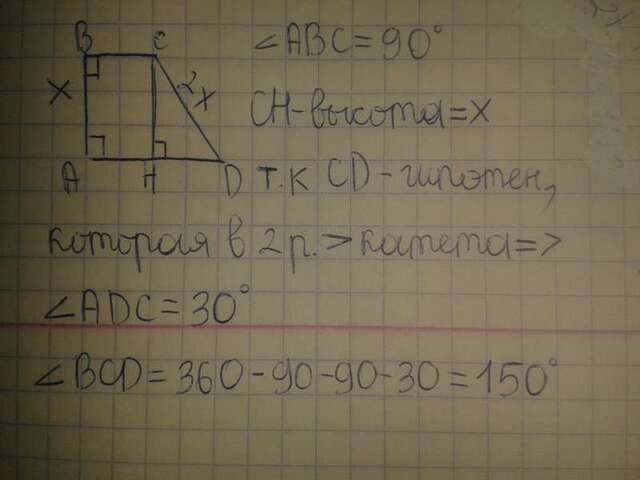 B C
∠ABC = 90°
x 2x
CH-высота=x
A H D
т.к CD-гипотен,
которая в 2 р. > катета =>
∠ADC = 30°
∠BCD = 360-90-90-30 = 150°